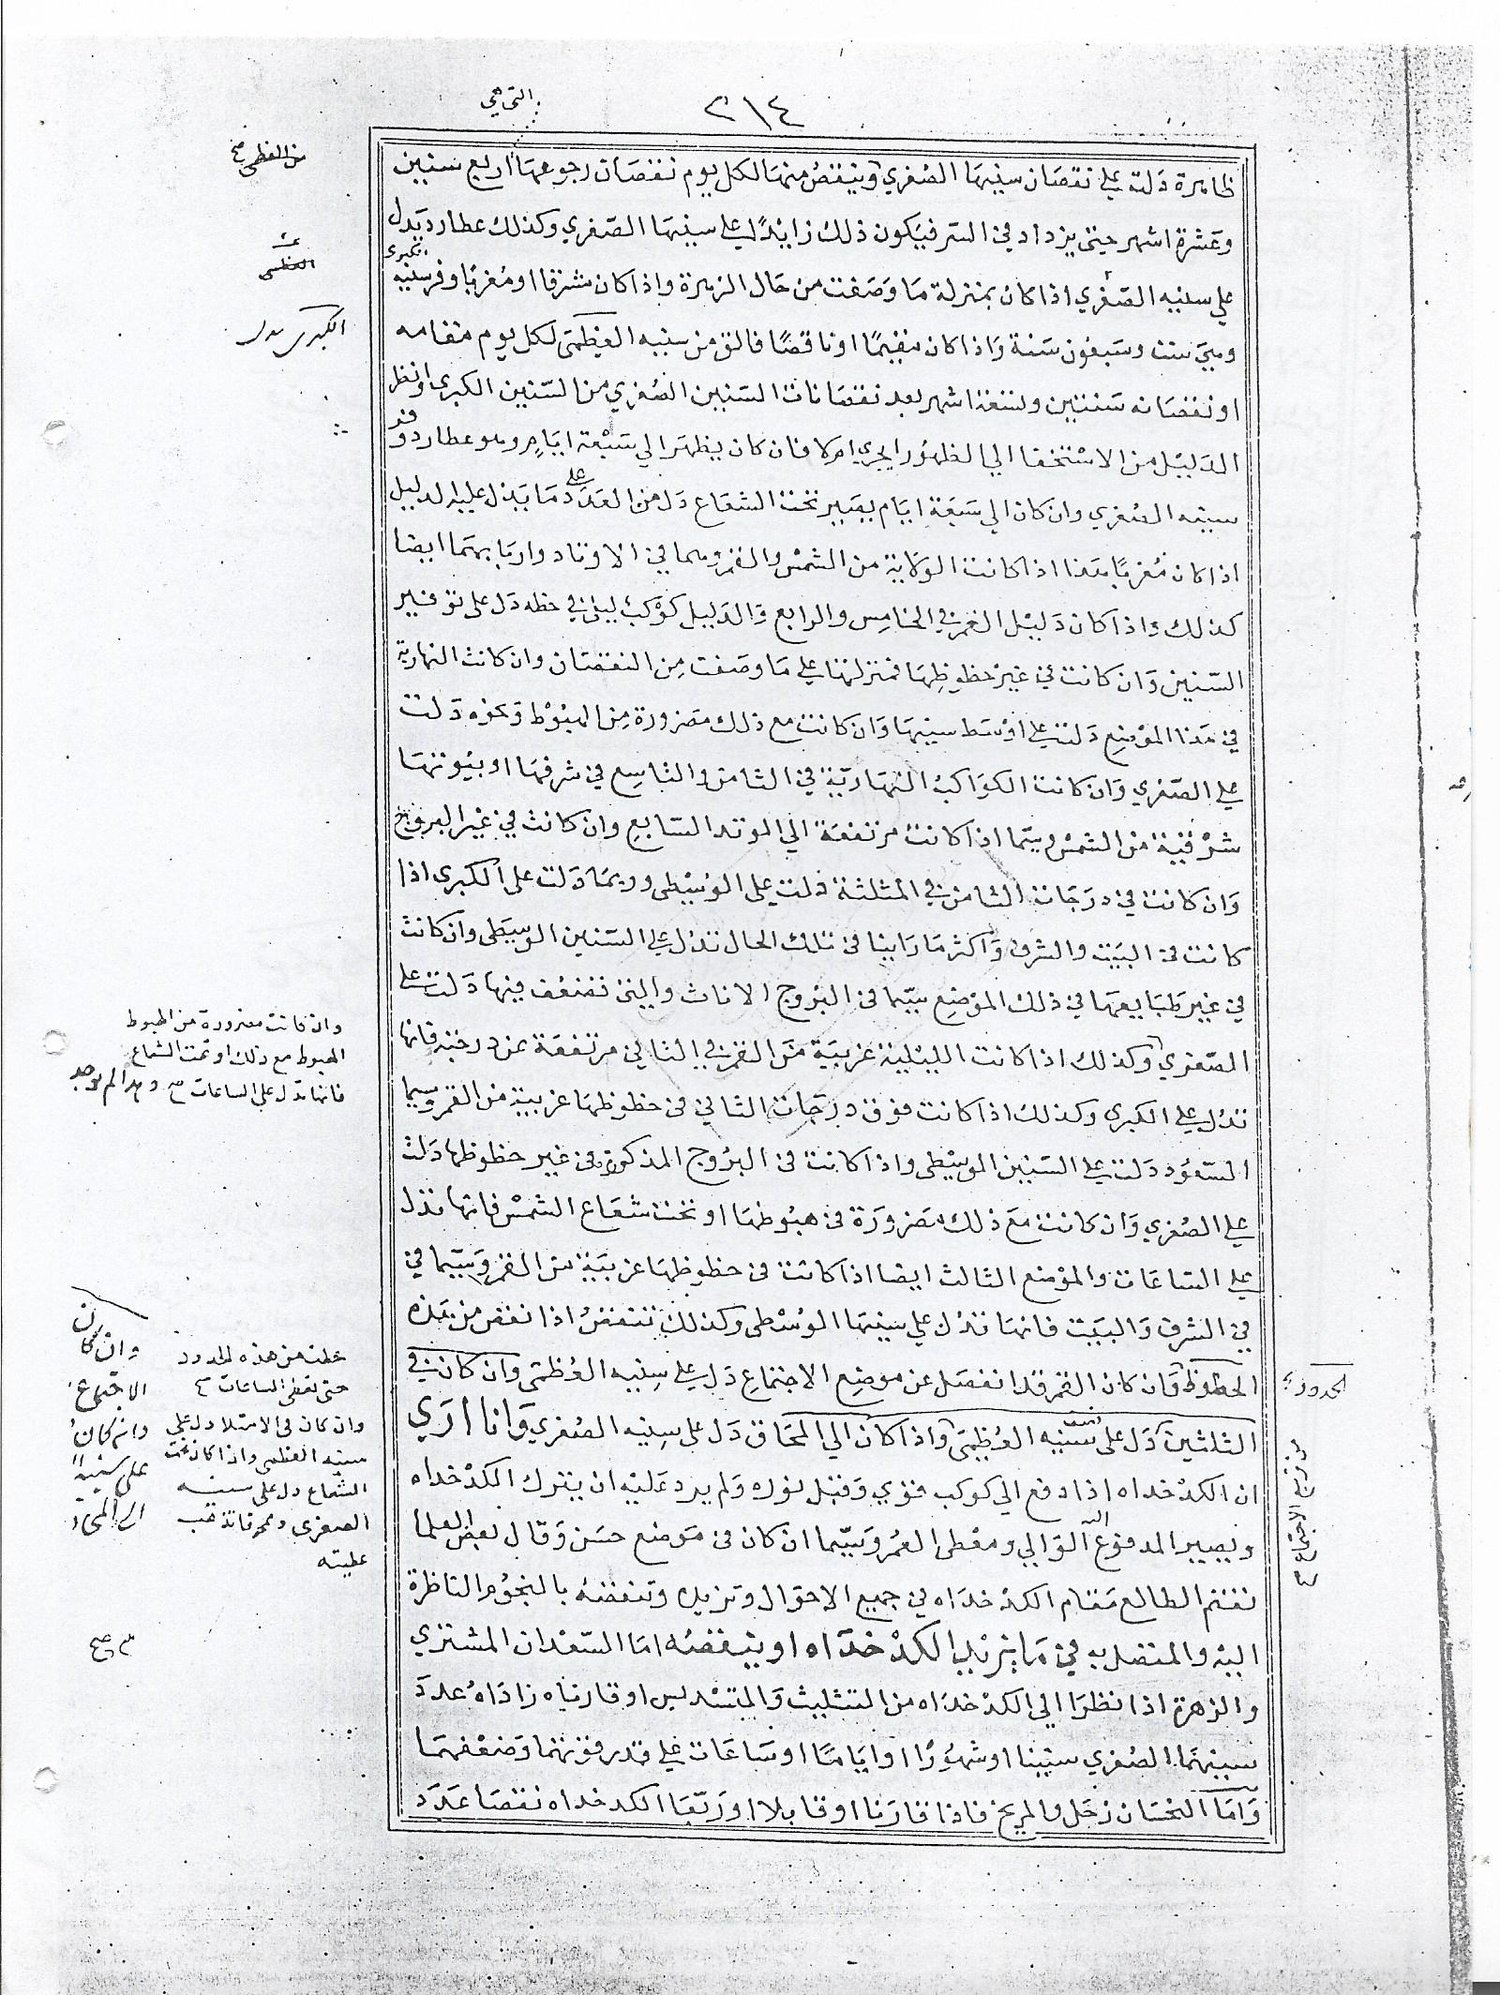 ٣١٤
التي هي
ظاهرة دلت علي نقصان سنيها الصغري وينقص منها لكل يوم نقصان رجوعها اربع سنين
وعشرة اشهر حتى يزداد في السر فيكون ذلك زايدًا علي سنيها الصغري وكذلك عطارد يدل
علي سنيه الصغري اذا كان بمنزلة ما وصفت من حال الزهرة واذا كان مشرقا او مغربًا وفر سنيه الكبرى
وهي ست وسبعون سنة واذا كان مقيمًا او ناقصًا فالق من سنيه العظمى لكل يوم مقامه
او نقصانه سنتين وتسعة اشهر بعد نقصانات السنين الصغري من السنين الكبرى وانظر
الدليل من الاستخفا الي الظهور ايجري ام لا فان كان يظهر الي سبعة ايام وهو عطارد وفر
سنيه الصغري وان كان الي سبعة ايام يصير تحت الشعاع دل من العدد على ما يدل عليه الدليل
اذا كان مغربًا هذا اذا كانت الولاية من الشمس والقمر وهما في الاوتاد واربابهما ايضا
كذلك واذا كان دليل القمر في الخامس والرابع والدليل كوكب ليلي في حظه دل على توفير
السنين وان كانت في غير حظوظها فمنزلتها علي ما وصفت من النقصان وان كانت النهارية
في هذا الموضع دلت علي اوسط سنيها وان كانت مع ذلك مضرورة من الهبوط ونحوه دلت
علي الصغري وان كانت الكواكب النهارية في الثامن والتاسع في شرفها او بيوتها
شرقية من الشمس وسيما اذا كانت مرتفعة الي الوتد السابع وان كانت في غير البروج
وان كانت في درجات الثامن في المثلثة دلت علي الوسطى وربما دلت على الكبرى اذا
كانت في البيت والشرف واكثر ما راينا في تلك الحال تدل علي السنين الوسطى وان كانت
في غير طبايعها في ذلك الموضع سيما في البروج الاناث والتي تضعف فيها دلت علي
الصغري وكذلك اذا كانت الليلية غربية من القمر في الثاني مرتفعة عن درجته فانها
تدل علي الكبرى وكذلك اذا كانت فوق درجات الثاني في حظوظها غربية من القمر وسيما
السعود دلت علي السنين الوسطى واذا كانت في البروج المذكورة في غير حظوظها دلت
علي الصغري وان كانت مع ذلك مضرورة في هبوطها او تحت شعاع الشمس فانها تدل
علي الساعات والموضع الثالث ايضا اذا كانت في حظوظها غربية من القمر وسيما في
في الشرف والبيت فانها تدل علي سنيها الوسطى وكذلك تنتقص اذا نقص من هذه
الحظوظ وان كان القمر قد انفصل عن موضع الاجتماع دل علي سنيه العظمى وان كان في
الثلثين دل على سنيه العظمى واذا كان الي المحاق دل على سنيه الصغري وانا اري
ان الكدخداه اذا دفع الي كوكب قوي وقبل نوره ولم يرد عليه ان يترك الكدخداه
ويصير المدفوع اليه الوالي ومعطى العمر وسيما ان كان في موضع حسن وقال بعض العلما
نقيم الطالع مقام الكدخداه في جميع الاحوال وتزيده وتنقصه بالنجوم الناظرة
اليه والمتصل به في ما يزيد الكدخداه او ينقصه اما السعدان المشتري
والزهرة اذا نظرا الي الكدخداه من التثليث والتسديس او قارناه زاداه عدد
سنيهما الصغري سنينا او شهورًا او ايامًا او ساعات علي قدر قوتهما وضعفهما
واما النحسان زحل والمريخ فاذا قارنا او قابلا او ربعا الكدخداه نقصا عدد
من العظمى صح
العظمى
الكبرى بدل
وان كانت مضرورة من الهبوط
الهبوط مع ذلك او تحت الشعاع
فانها تدل على الساعات وهذا لم يوجد
حطت من هذه الحدود
حتى تعطى الساعات
وان كان في الامتلا دل على
سنيه العظمى واذا كان تحت
الشعاع دل على سنيه
الصغرى ومحرقا تذهب
عطيته
وان كان
الاجتماع
وان كان
على سنيه
الى المحاق
الحدود